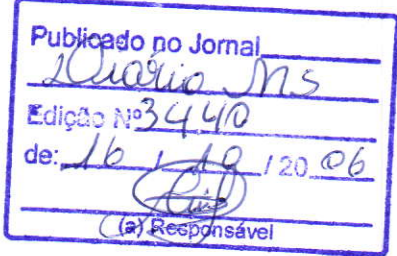 Publicado no Jornal
Diário MS
Edição Nº 3440
de: 16 / 10 / 20 06
(a) Responsável